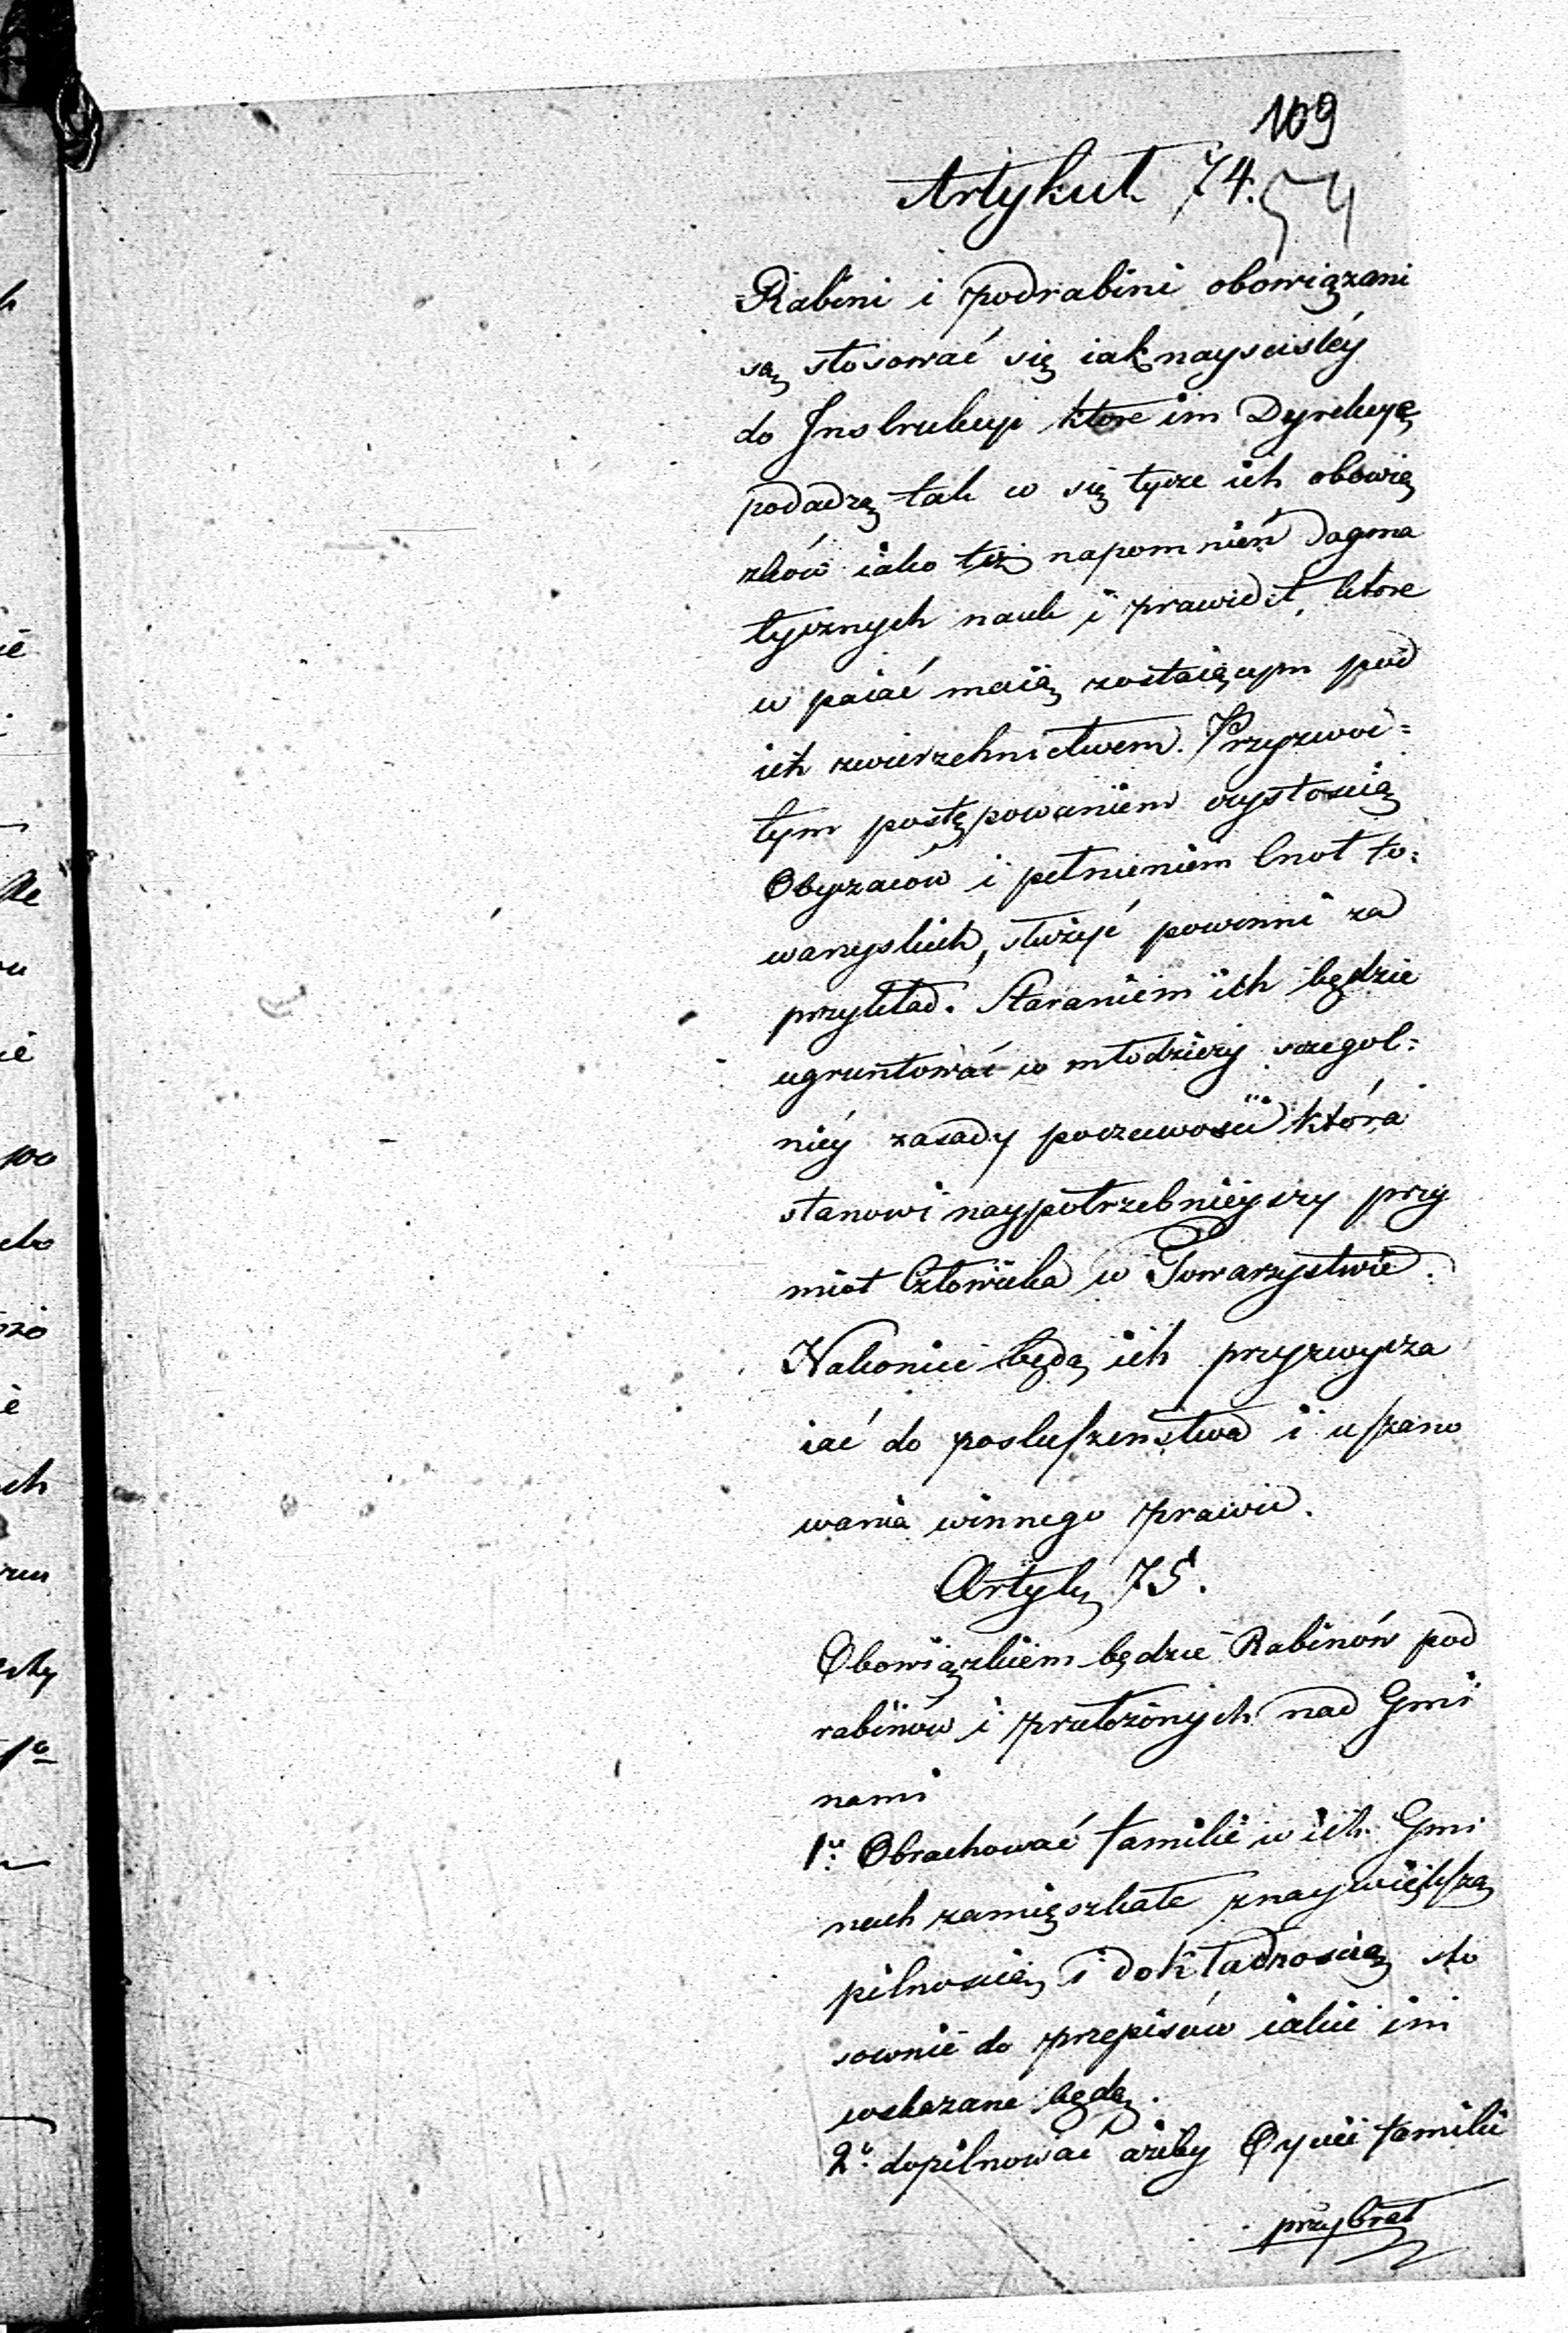 109
Artykuł 74.
54
Rabini i podrabini obowiązani
są stosować się iak nayscisléy
do Instrukcyi które im Dyrekcye
podadzą tak w się tycze ich obowią
zków iako też napomnień Dogma
tycznych nauk i prawideł, które
w paiać maią zostaiącym pod
ich zwierzchnictwem. Przyzwoi=
tym postępowaniem czystością
Obyczaiów i pełnieniem Cnot to=
warzyskich, służyć powinni za
przykład. Staraniem ich będzie
ugruntować w młodzieży szegol=
niéy zasady poczciwości która
stanowi naypotrzebnieyszy przy
miot Człowieka w Towarzystwie.
Nakoniec będą ich przyzwycza
iać do posłuszeństwa i uszano
wania winnego prawu.
Artyku 75.
Obowiązkiem będzie Rabinów pod
rabinów i przełożonych nad Gmi
nami
1o Obrachować familie w ich Gmi
nach zamięszkałe z naywiększą
pilnością i dokładnością sto
sownie do przepisów iakie im
wskazane będą.
2o dopilnować ażeby Oycie familii
przybrał